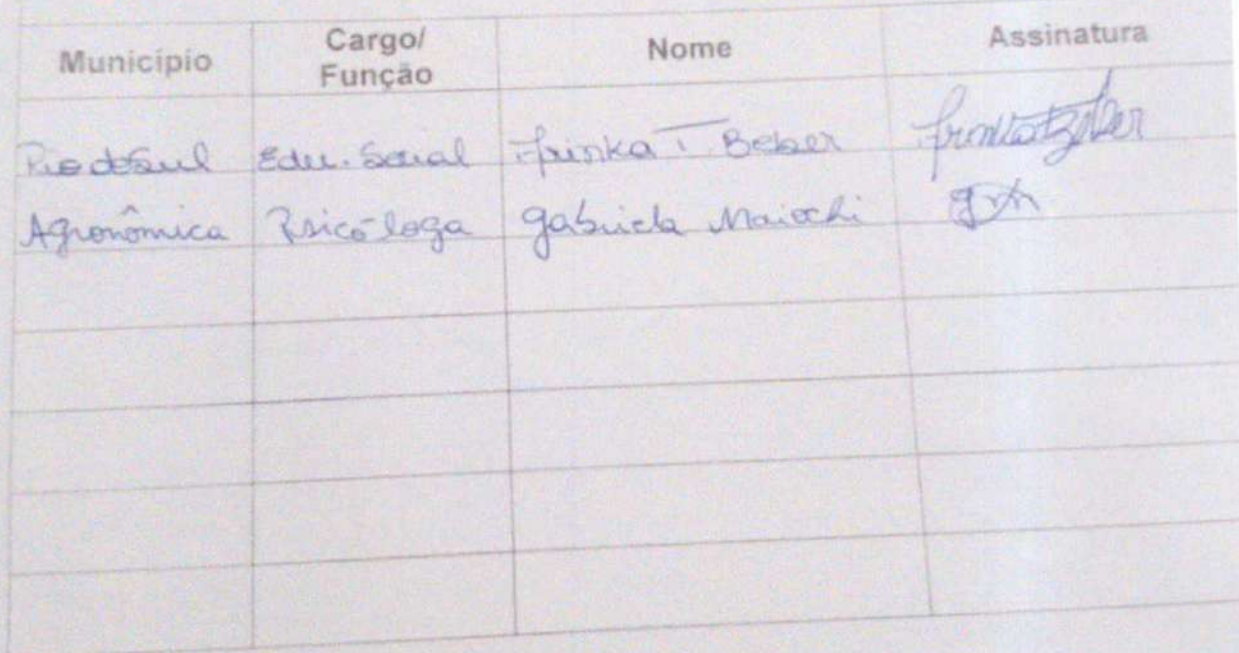 Município Cargo/ Função Nome Assinatura
Rio do Sul Edu. Social T Beber
Agronômica Psicóloga Gabriela Maiochi